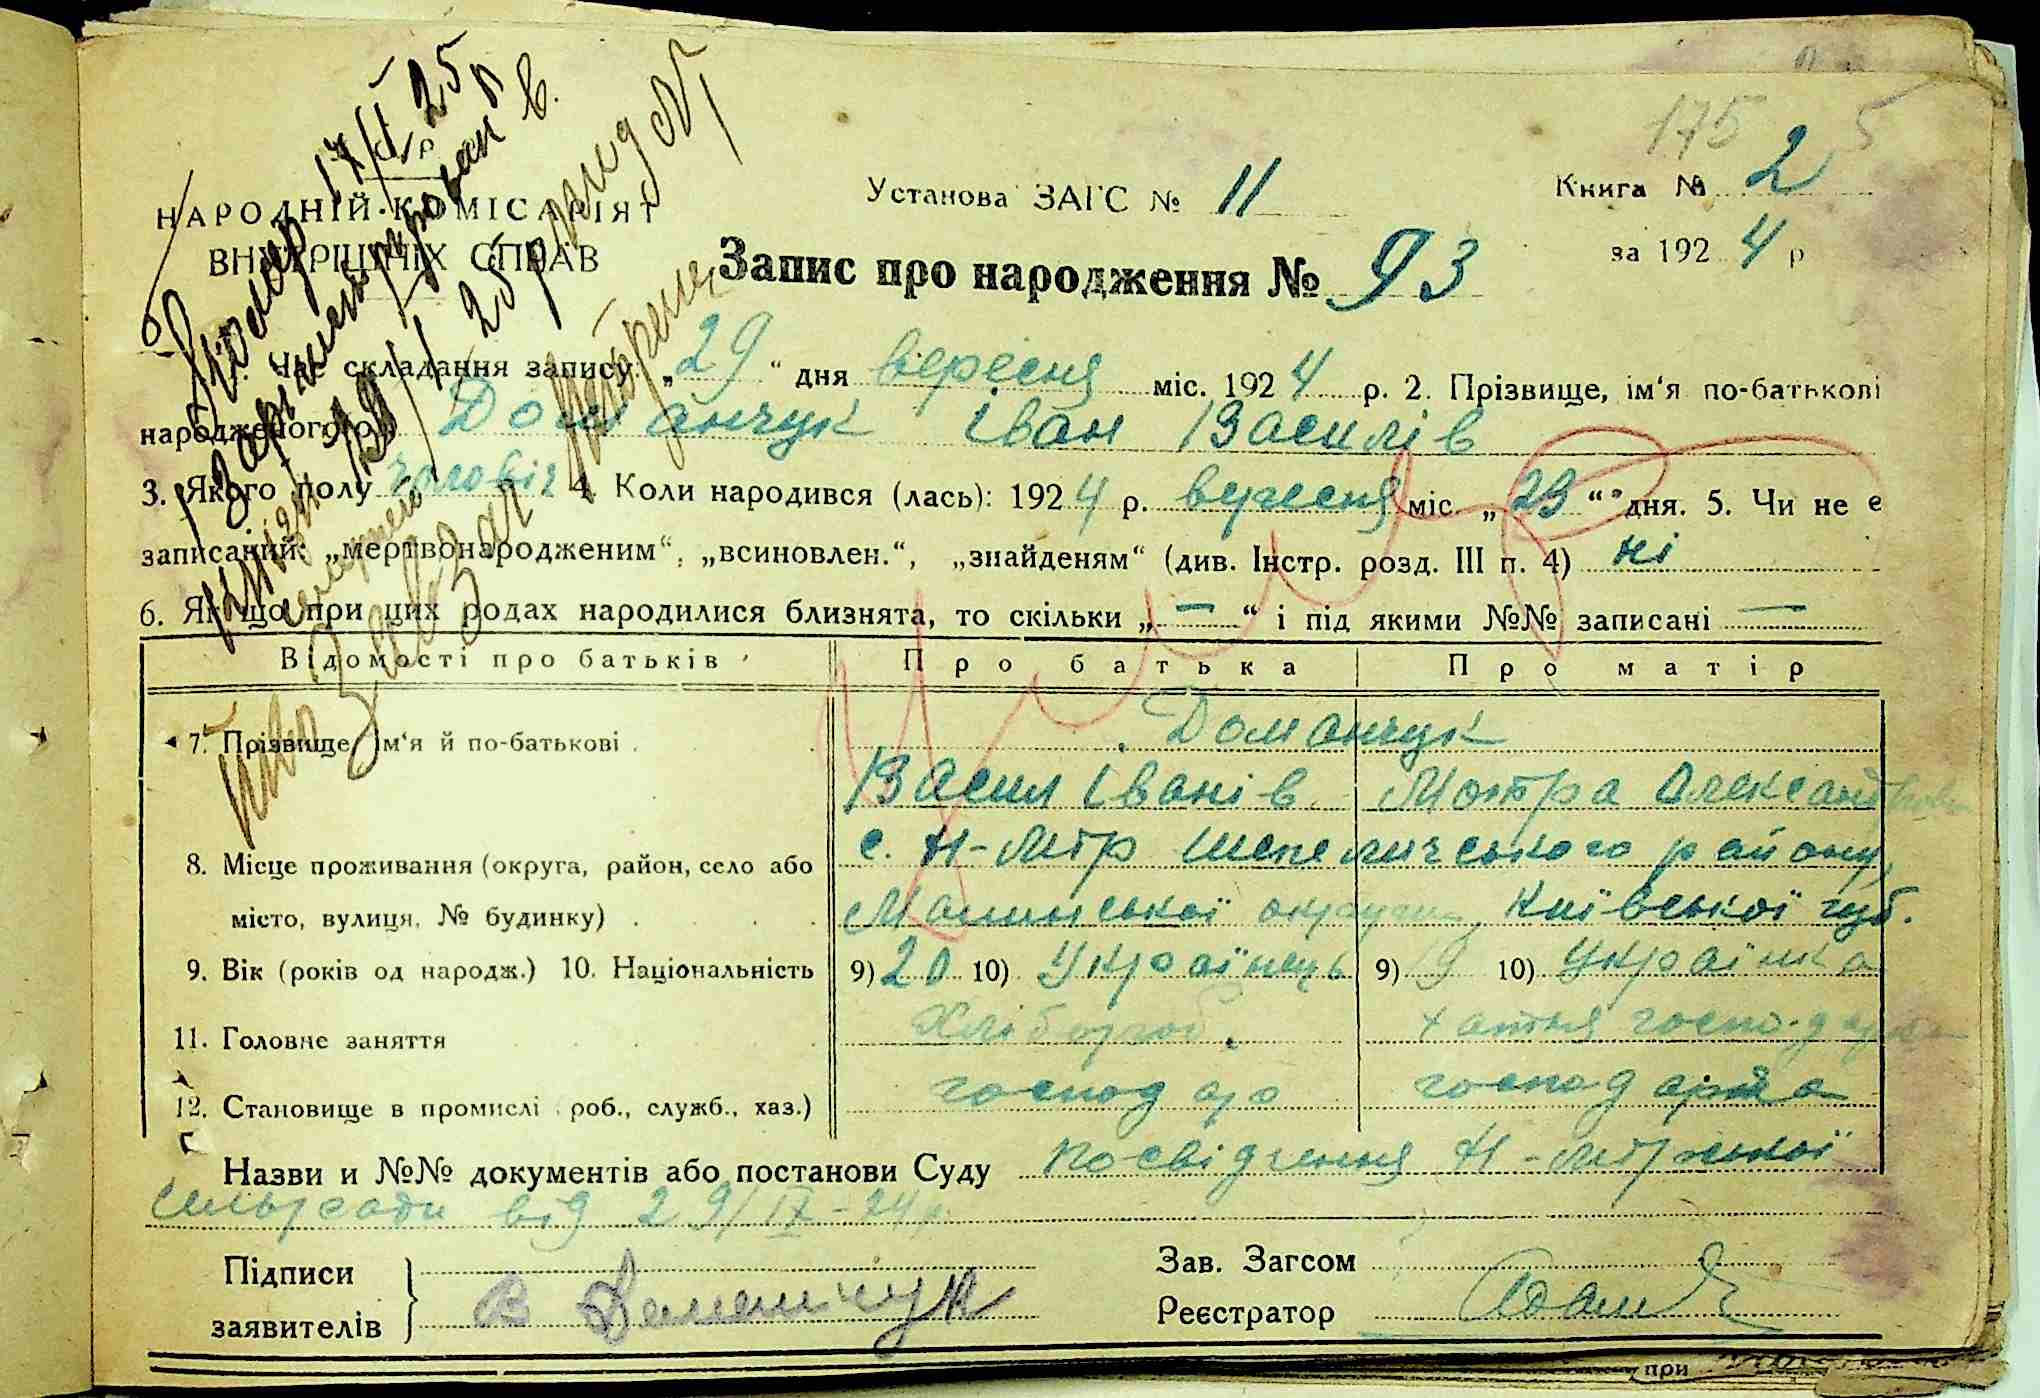 175 5
У С Р Р
НАРОДНІЙ КОМІСАРІЯТ
ВНУТРІШНІХ СПРАВ
Установа ЗАГС № 11
Книга № 2
за 1924 р
Запис про народження № 93
Помер 17/I 25 р
1. Час складання запису: „29“ дня вересня міс. 1924 р. 2. Прізвище, ім‘я по-батькові
народженого Доманчук Іван Василів
3. Якого полу чоловіч 4. Коли народився (лась): 1924 р. вересня міс. „23“ дня. 5. Чи не є
записаний: „мертвонародженим“, „всиновлен.“, „знайденям“ (див. Інстр. розд. III п. 4) ні
6. Якщо при цих родах народилися близнята, то скільки „—“ і під якими №№ записані —
Відомості про батьків
Про батька
Про матір
7. Прізвище, ім‘я й по-батькові
Доманчук
Васил Іванів
Мотра Олександрівна
8. Місце проживання (округа, район, село або
місто, вулиця, № будинку)
с. Н-Мтр Шепеличського району,
Малинської округи, Київської губ.
9. Вік (років од народж.) 10. Національність
9) 20 10) Українець
9) 19 10) Українка
11. Головне заняття
Хлібороб.
хатня господарка
12. Становище в промислі (роб., служб., хаз.)
господар
господарка
Назви и №№ документів або постанови Суду посвідчення Н-Мтрської
сільради від 29/IX-24 р.
Підписи
заявителів
В Доманчук
Зав. Загсом
Реєстратор
при